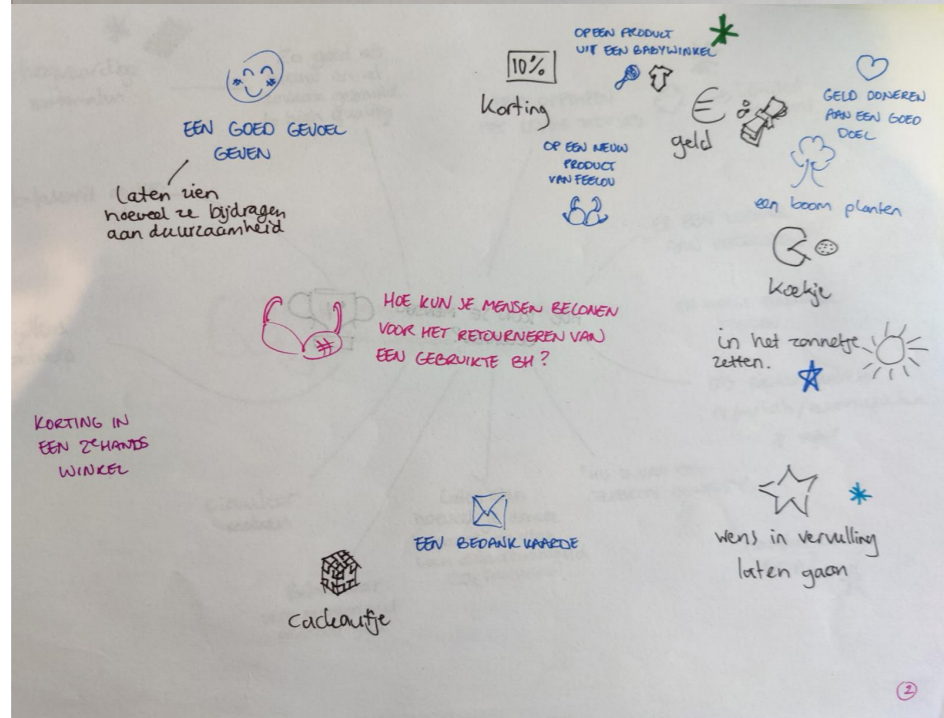 EEN GOED GEVOEL
GEVEN
laten zien
hoeveel ze bijdragen
aan duurzaamheid
10%
korting
OP EEN PRODUCT
UIT EEN BABYWINKEL
OP EEN NIEUW
PRODUCT
VAN FEELOU
€
geld
GELD DONEREN
AAN EEN GOED
DOEL
een boom planten
koekje
in het zonnetje
zetten.
HOE KUN JE MENSEN BELONEN
VOOR HET RETOURNEREN VAN
EEN GEBRUIKTE BH?
KORTING IN
EEN 2eHANDS
WINKEL
EEN BEDANKKAARDE
cadeautje
wens in vervulling
laten gaan
2